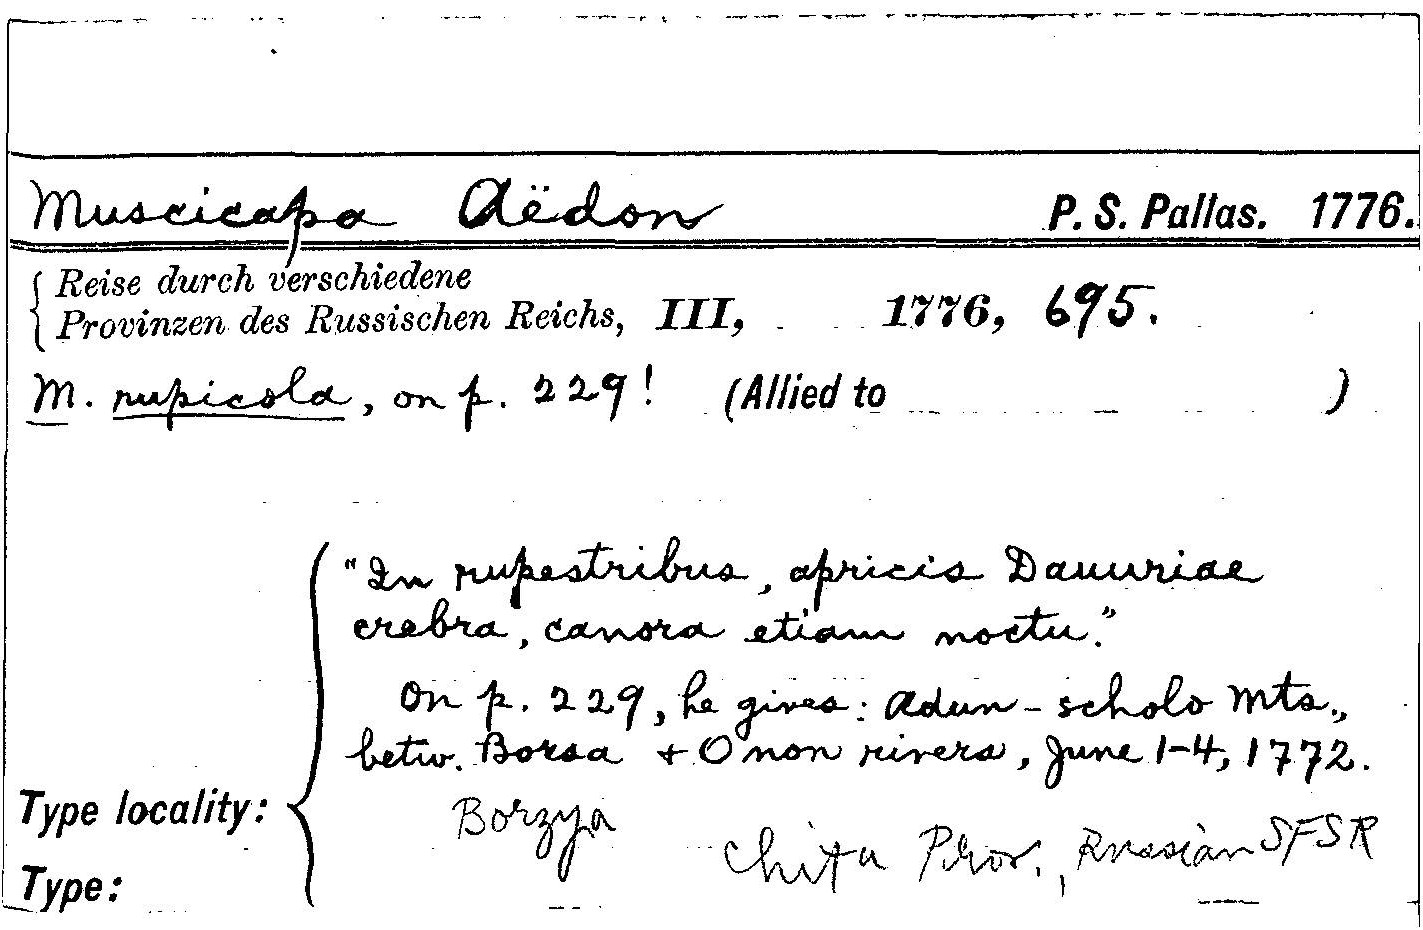 Muscicapa Aëdon P. S. Pallas. 1776.
Reise durch verschiedene
Provinzen des Russischen Reichs, III, 1776, 695.
M. rupicola, on p. 229! (Allied to )
"In rupestribus, apricis Dauuriae
crebra, canora etiam noctu."
On p. 229, he gives: Adun-scholo Mts.,
betw. Borsa + Onon rivers, June 1-4, 1772.
Type locality: Borzya
Chita Prov., Russian SFSR
Type: